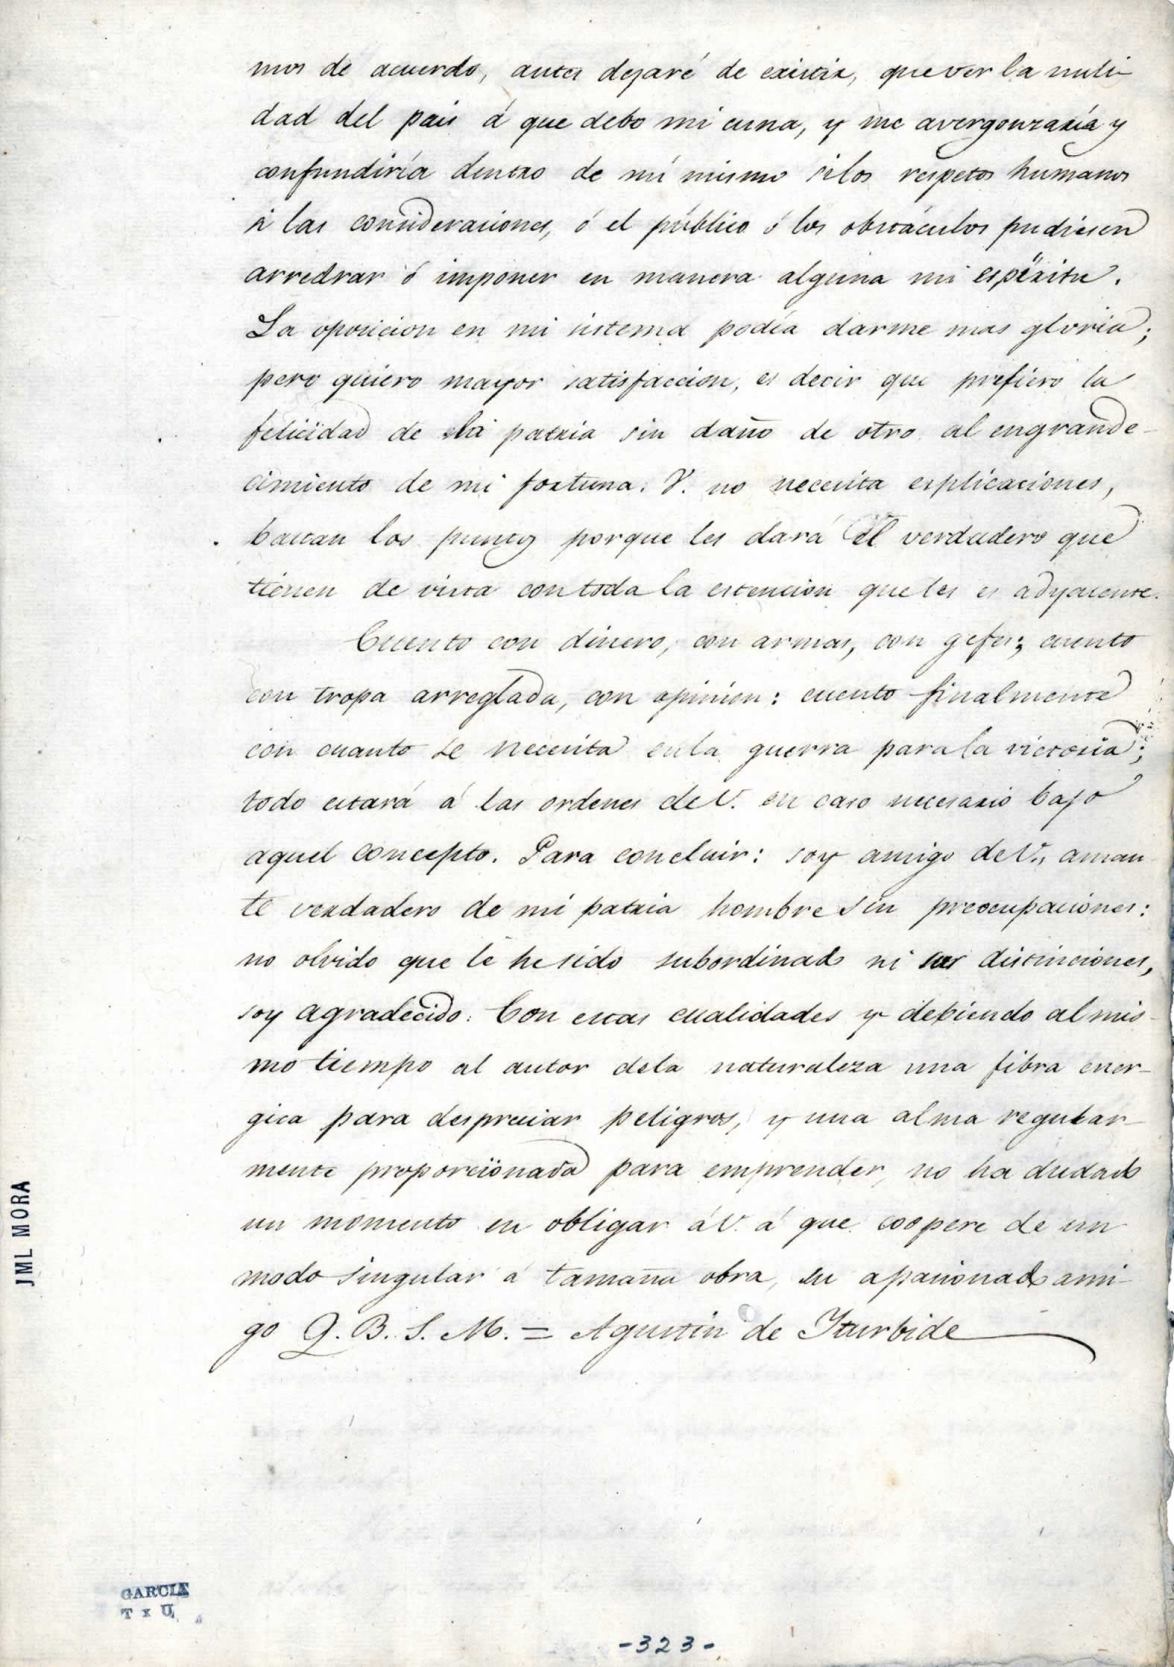 mos de acuerdo, antes dejaré de existir, que ver la nuli-
dad del pais á que debo mi cuna, y me avergonzaría y
confundiría dentro de mí mismo si los respetos humanos
si las consideraciones, ó el público ó los obstáculos pudiesen
arredrar ó imponer en manera alguna mi espíritu.
La oposicion en mi sistema podía darme mas gloria;
pero quiero mayor satisfaccion, es decir que prefiero la
felicidad de la patria sin daño de otro al engrande-
cimiento de mi fortuna. V. no necesita esplicaciones,
bastan los puntos porque les dará el verdadero que
tienen de vista con toda la estencion que les es adyacente.
Cuento con dinero, con armas, con gefes; cuento
con tropa arreglada, con opinion: cuento finalmente
con cuanto se necesita en la guerra para la victoria;
todo estará á las ordenes de V. en caso necesario bajo
aquel concepto. Para concluir: soy amigo de V., aman-
te verdadero de mi patria hombre sin preocupaciones:
no olvido que le he sido subordinado ni sus distinciones,
soy agradecido. Con estas cualidades y debiendo al mis-
mo tiempo al autor dela naturaleza una fibra ener-
gica para despreciar peligros, y una alma regular-
mente proporcionada para emprender, no ha dudado
un momento en obligar á V. á que coopere de un
modo singular á tamaña obra, su apasionado ami-
go Q. B. S. M. = Agustin de Yturbide
JML MORA
GARCIA
T x U
-323-